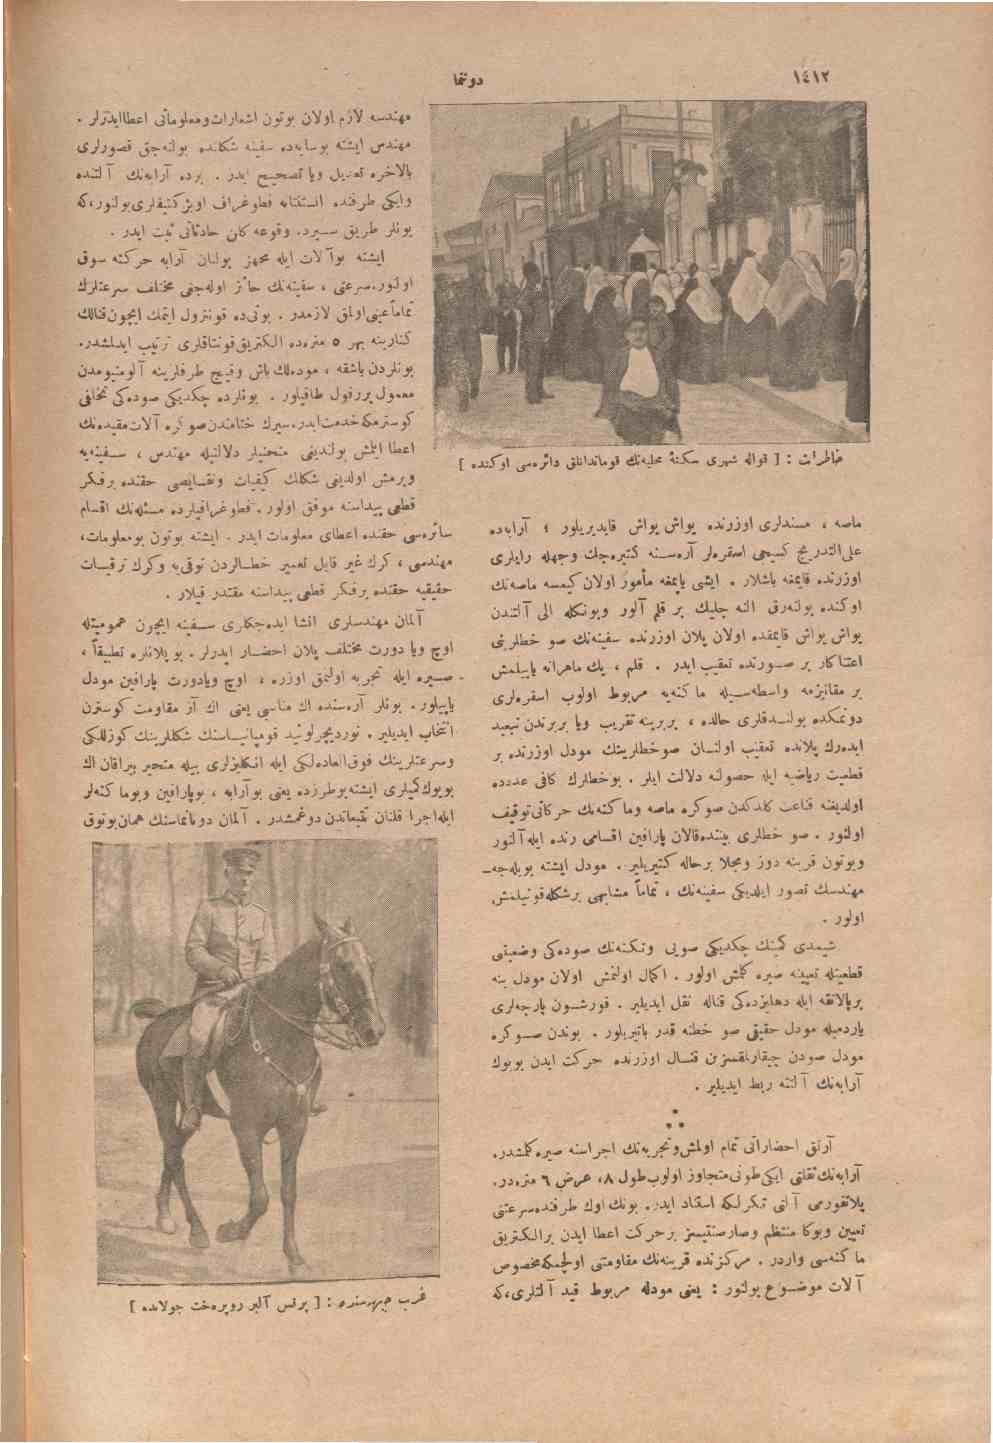 ١٤١٢
دوننما
خاطرات : [ قواله شهری سکنهٔ محلیه‌نك قوماندانلق دائره‌سی اوکنده ]
ماصه ، مسندلری اوزرنده یواش یواش قایدیریلور ؛ آرابه‌ده
علی التدریج کسیجی اسقره‌لر آره‌سنه کتیره‌جك وجهله رایلری
اوزرنده قایمغه باشلار . ایشی یاپمغه مأمور اولان کیمسه ماصه‌نك
اوکنده بولنه‌رق النه چلیك بر قلم آلور وبونکله الی آلتندن
یواش یواش قایمقده اولان پلان اوزرنده سفینه‌نك صو خطلرینی
اعتناکار بر صورتده تعقیب ایدر . قلم ، پك ماهرانه یاپیلمش
بر مقانیزمه واسطه‌سیله ماکنه‌یه مربوط اولوب اسقره‌لری
دونمکده بولندقلری حالده ، بربرینه تقریب ویا بربرندن تبعید
ایده‌رك پلانده تعقیب اولنان صوخطلرینك مودل اوزرنده بر
قطعیت ریاضیه ایله حصولنه دلالت ایلر . بوخطلرك کافی عددده
اولدیغنه قناعت کلدکدن صوکره ماصه وماکنه‌نك حرکاتی توقیف
اولنور . صو خطلری بیننده قالان پارافین اقسامی رنده ایله آلنور
وبوتون قرینه دوز ومجلا برحاله کتیریلیر . مودل ایشته بویله‌جه
مهندسك تصور ایلدیکی سفینه‌نك ، تماماً مشابهی برشکله قونیلمش
اولور .
شیمدی کمینك چکدیکی صویی وتکنه‌نك صوده‌کی وضعیتی
قطعیتله تعیینه صیره کلمش اولور . اکمال اولنمش اولان مودل ینه
برپالانغه ایله دهلیزده‌کی قناله نقل ایدیلیر . قورشون پارچه‌لری
یاردمیله مودل حقیقی صو خطنه قدر باتیریلور . بوندن صوکره
مودل صودن چیقارلقسزین قنال اوزرنده حرکت ایدن بویوك
آرابه‌نك آلتنه ربط ایدیلیر .
⁂
آرتق احضاراتی تمام اولمش وتجربه‌نك اجراسنه صیره کلمشدر.
آرابه‌نك ثقلتی ایکی طونی متجاوز اولوب طول ٨، عرض ٦ متره‌در.
پلاتفورمی آلتی تکرلکه استناد ایدر. بونك اوك طرفنده سرعتی
تعیین وبوکا منتظم وصارصنتیسز برحرکت اعطا ایدن برالکتریق
ماکنه‌سی واردر . مرکزنده قرینه‌نك مقاومتنی اولچمکه مخصوص
آلات موضوع بولنور : یعنی مودله مربوط قید آلتلری، که
مهندسه لازم اولان بوتون اشعارات ومعلوماتی اعطا ایدرلر .
مهندس ایشته بوسایه‌ده سفینه شکلنده بولنه‌جق قصورلری
بالاخره تعدیل ویا تصحیح ایدر . برده آرابه‌نك آلتنده
وایکی طرفنده انستنتانه فطوغراف اوبژکتیفلری بولنور، که
بونلر طریق سیرده وقوعه کلن حادثاتی ثبت ایدر .
ایشته بوآلات ایله مجهز بولنان آرابه حرکته سوق
اولنور. سرعتی ، سفینه‌نك حائز اوله‌جغی مختلف سرعتلرك
تماماً عینی اولمق لازمدر . بونی‌ده قونترول ایتمك ایچون قنالك
کنارینه بهر ٥ متره‌ده الکتریق قونتاقلری ترتیب ایدلمشدر.
بونلردن باشقه ، مودهلك باش وقیچ طرفلرینه آلومنیومدن
معمول بررقول طاقیلور . بونلرده چکدیکی صوده‌کی تخالفی
کوسترمکه خدمت ایدر. سیرك ختامندن صوکره آلات مقیده‌نك
اعطا ایتمش بولندیغی منحنیلر دلالتیله مهندس ، سفینه‌یه
ویرمش اولدیغی شکلك کیفیات ونقایصی حقنده برفکر
قطعی پیداسنه موفق اولور . فطوغرافیلرده مسئله‌نك اقسام
سائره‌سی حقنده اعطای معلومات ایدر . ایشته بوتون بومعلومات،
مهندسی ، کرك غیر قابل تعمیر خطالردن توقی‌یه وکرك ترقیات
حقیقیه حقنده برفکر قطعی پیداسنه مقتدر قیلار .
آلمان مهندسلری انشا ایده‌جکلری سفینه ایچون عمومیتله
اوچ ویا دورت مختلف پلان احضار ایدرلر . بو پلانلره تطبیقاً ،
صیره ایله تجربه اولنمق اوزره ، اوچ ویادورت پارافین مودل
یاپیلور . بونلر آره‌سنده اك مناسبی یعنی اك آز مقاومت کوسترن
انتخاب ایدیلیر . نوردیچرلوئید قومپانیاسنك شکللرینك کوزللکی
وسرعتلرینك فوق‌العاده‌لکی ایله انکلیزلری بیله متحیر بیراقان اك
بویوك کمیلری ایشته بوطرزده یعنی بوآرابه ، بوپارافین وبوماکنه‌لر
ایله اجرا قلنان تتبعاتدن دوغمشدر . آلمان دوننماسنك همان بوتون
غرب جبهه‌سنده : [ پرنس آلبر روپرەخت جولانده ]